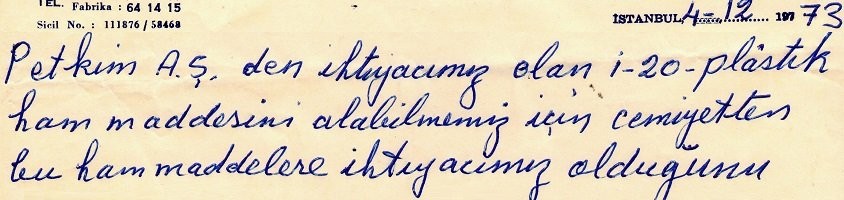 TEL. Fabrika : 64 14 15
Sicil No. : 111876 / 58468
İSTANBUL, 4-12 197 73
Petkim A.Ş. den ihtiyacımız olan i-20-plâstik
ham maddesini alabilmemiz için cemiyetten
bu ham maddelere ihtiyacımız olduğunu